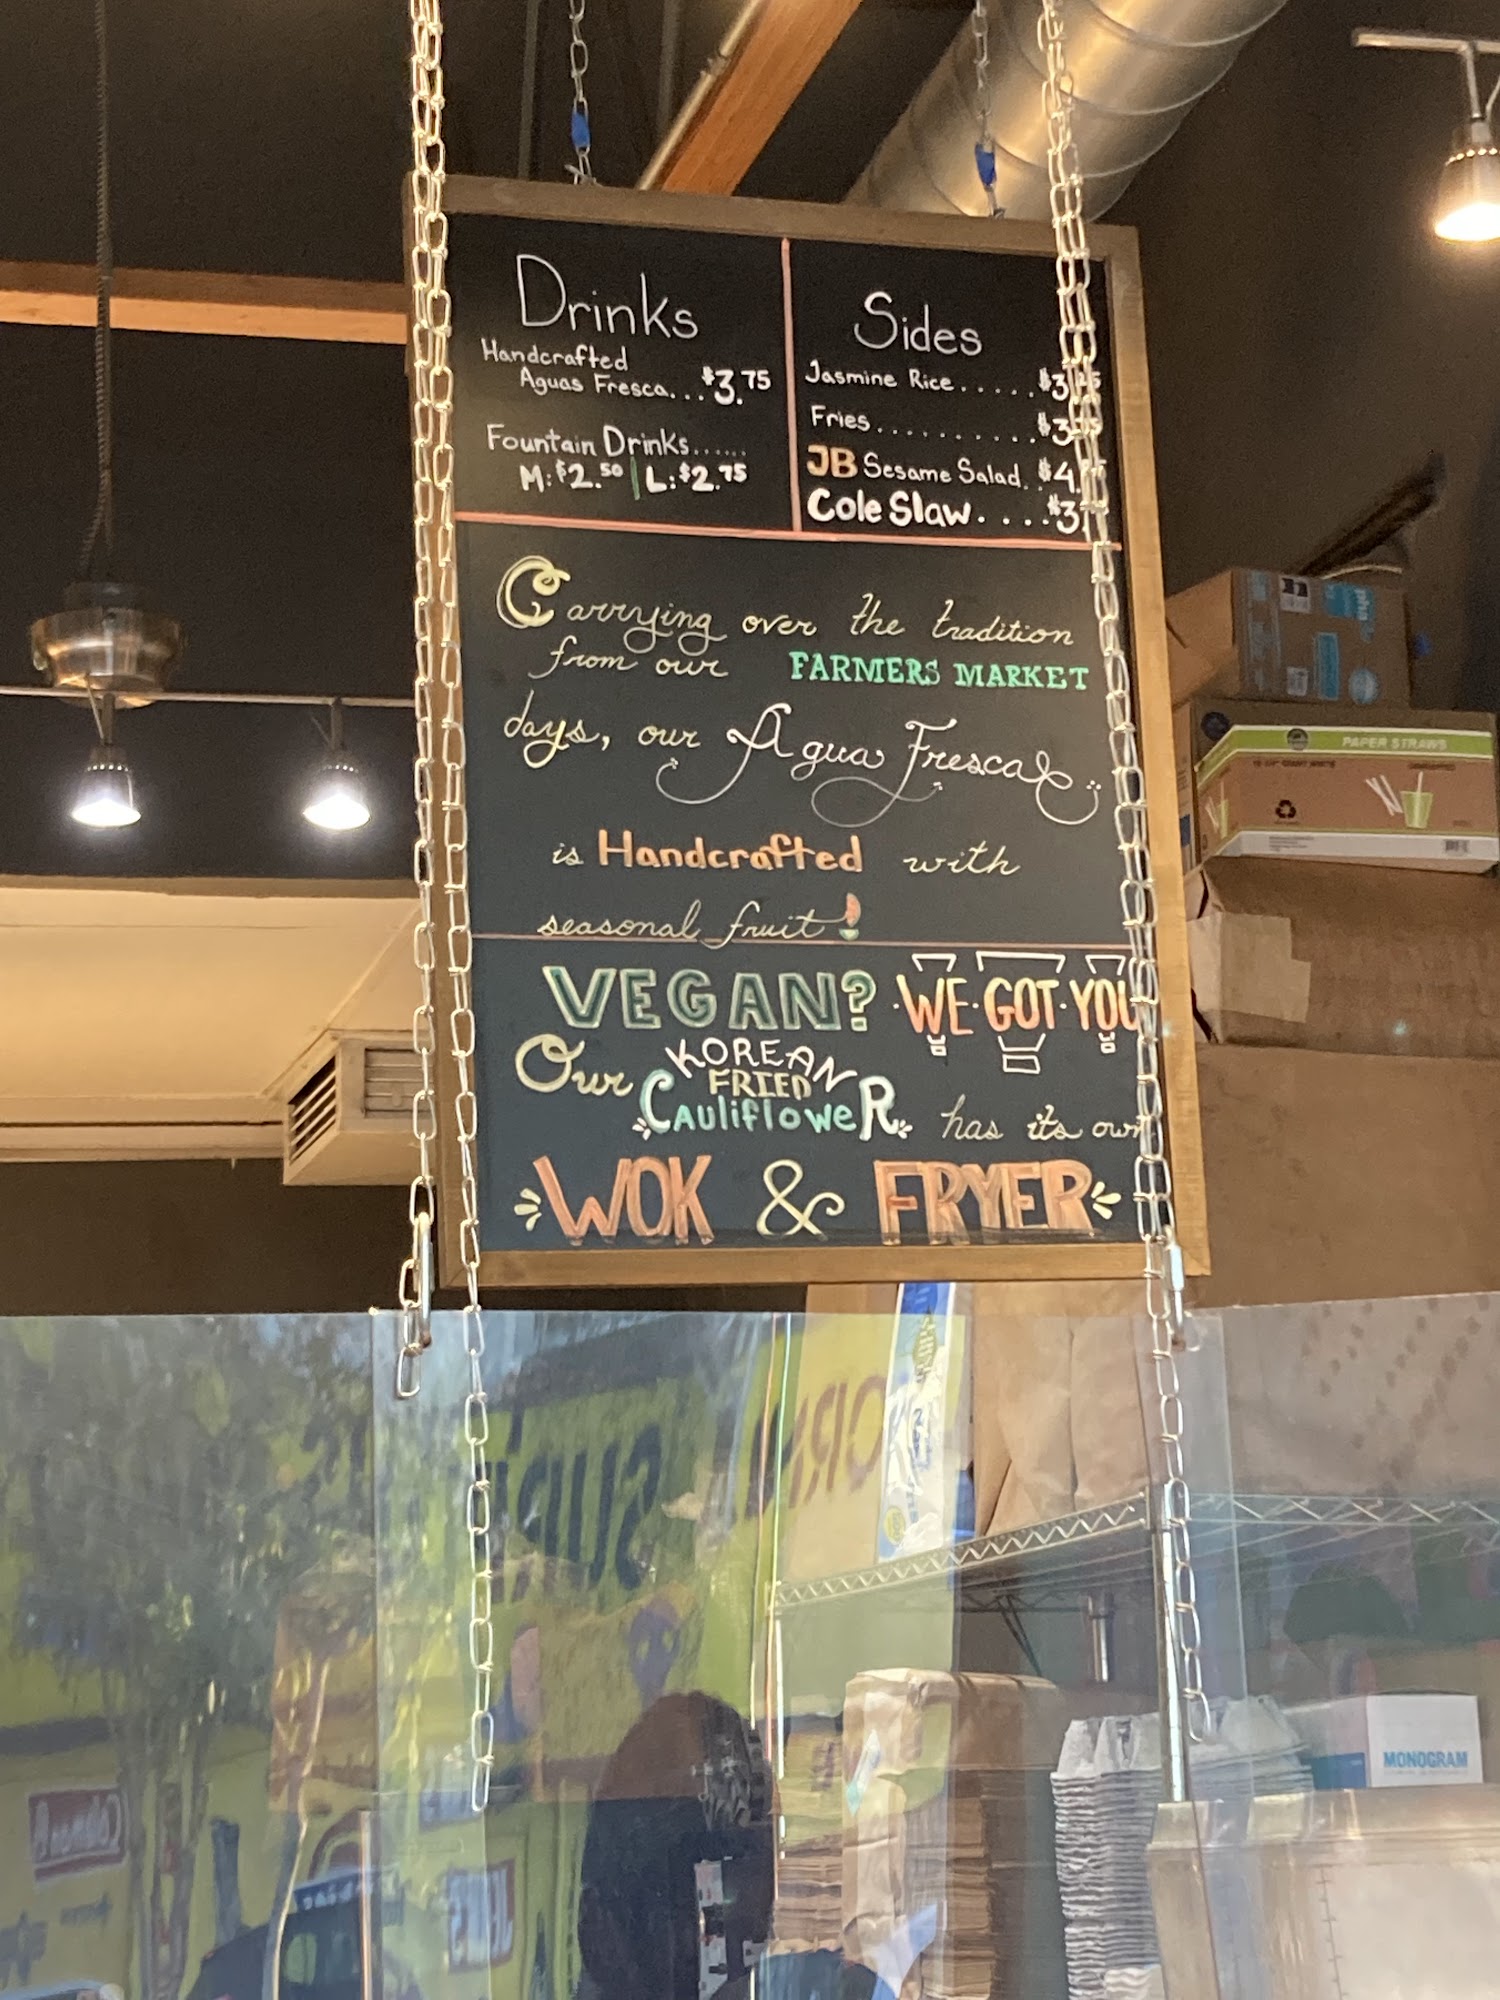 Drinks
Handcrafted
Aguas Fresca... $3.75
Fountain Drinks......
M:$2.50 | L:$2.75
Sides
Jasmine Rice.....
Fries..........
JB Sesame Salad..
Cole Slaw....
Carrying over the tradition
from our FARMERS MARKET
days, our Agua Frescas
is Handcrafted with
seasonal fruit!
VEGAN? WE·GOT·YOU
Our KOREAN
FRIED
CAulifloweR has its own
WOK & FRYER
PAPER STRAWS
MONOGRAM